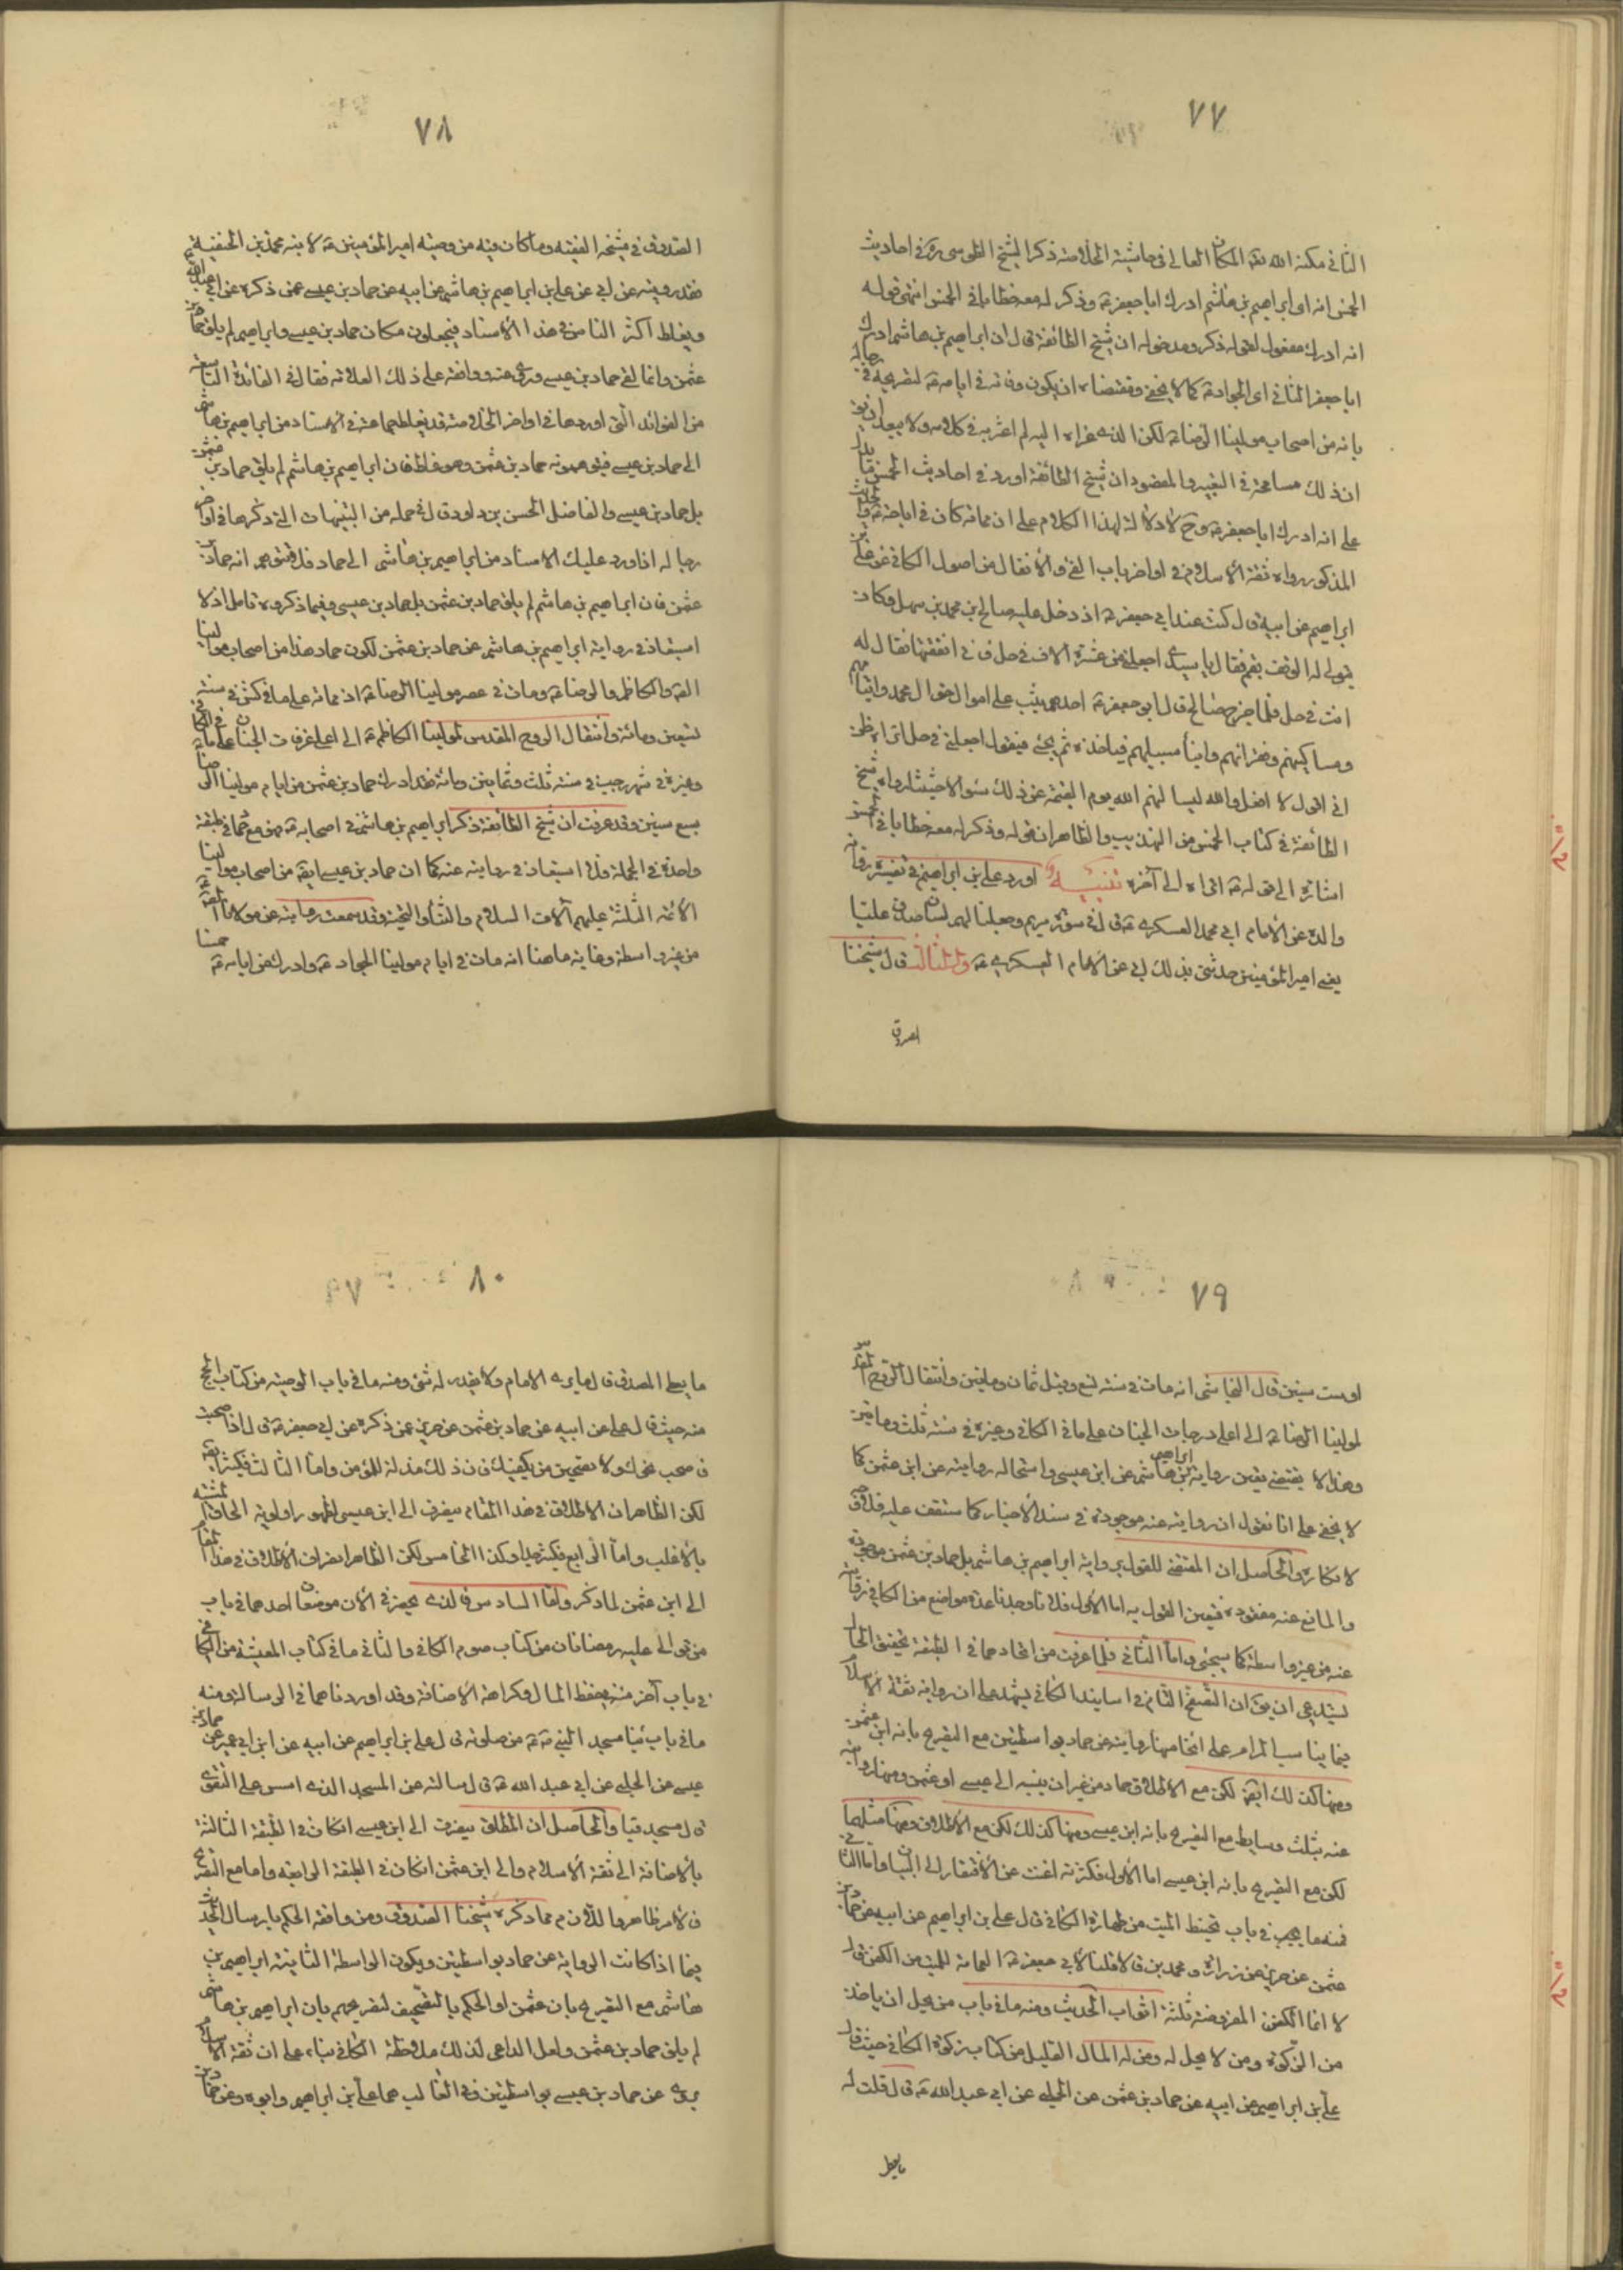 ٧٧
الثاني مكنه الله تعالى المكان العالي في حاشية الخلاصة ذكر الشيخ الطوسي ره في احاديث
الخمس انه اي ابراهيم بن هاشم ادرك ابا جعفر ع وذكر له معه خطابا في الخمس انتهى قوله
انه ادرك مفعول لقوله ذكر ومدخوله ان شيخ الطائفة قال ان ابراهيم بن هاشم ادرك
ابا جعفر الثاني اي الجواد ع كما لا يخفى ومقتضاه ان يكون وفاته في ايامه ع لتصريحه في رجاله
بانه من اصحاب مولينا الرضا ع لكن الذي عزاه اليه لم اعثر به في كلامه ولا يبعد ان يق
ان ذلك مسامحة في التعبير والمقصود ان شيخ الطائفة اورد في احاديث الخمس ما يدل
على انه ادرك ابا جعفر ع وح لا دلالة لهذا الكلام على ان مماته كان في ايامه ع والحديث
المذكور رواه ثقة الاسلام في اواخر باب الفئ والانفال من اصول الكافي عن علي بن
ابراهيم عن ابيه قال كنت عند ابي جعفر ع اذ دخل عليه صالح بن محمد بن سهل وكان
يتولى له الوقف بقم فقال يا سيدي اجعلني من عشرة الاف في حل فاني انفقتها فقال له
انت في حل فلما خرج صالح قال ابو جعفر ع احدهم يثب على اموال حق ال محمد وايتامهم
ومساكينهم وفقرائهم وابناء سبيلهم فياخذه ثم يجئ فيقول اجعلني في حل اتراه ظن
اني اقول لا افعل والله ليسالنهم الله يوم القيمة عن ذلك سؤالا حثيثا رواه شيخ
الطائفة في كتاب الخمس من التهذيب والظاهر ان قوله وذكر له معه خطابا في الخمس
اشارة الى قوله ع اتراه الى آخره تنبيه اورد علي بن ابراهيم في تفسيره رواية
والده عن الامام ابي محمد العسكري ع قال في سورة مريم وجعلنا لهم لسان صدق عليا
يعني امير المؤمنين حدثني بذلك ابي عن الامام العسكري ع والثالث قال شيخنا
الصدوق
٧٨
الصدوق في مشيخة الفقيه وما كان فيه من وصية امير المؤمنين ع لابنه محمد بن الحنفية
فقد رويته عن ابي عن علي بن ابراهيم بن هاشم عن ابيه عن حماد بن عيسى عمن ذكره عن ابي عبد الله ع
ويغلط اكثر الناس في هذا الاسناد فيجعلون مكان حماد بن عيسى وابراهيم لم يلق حماد بن
عثمن وانما لقي حماد بن عيسى وروى عنه ووافقه على ذلك العلامة فقال في الفائدة التاسعة
من الفوائد التي اوردها في اواخر الخلاصة قد يغلط جماعة في الاسناد من ابراهيم بن هاشم
الى حماد بن عيسى فيتوهمونه حماد بن عثمن وهو غلط فان ابراهيم بن هاشم لم يلق حماد بن عثمن
بل حماد بن عيسى والفاضل الحسن بن داود قال في جملة من التنبيهات التي ذكرها في اواخر
رجاله اذا ورد عليك الاسناد من ابراهيم بن هاشم الى حماد فلا تتوهم انه حماد بن
عثمن فان ابراهيم بن هاشم لم يلق حماد بن عثمن بل حماد بن عيسى وفيما ذكروه تامل اذ لا
استبعاد في رواية ابراهيم بن هاشم عن حماد بن عثمن لكون حماد هذا من اصحاب مولينا
الصادق والكاظم والرضا ومات في عصر مولينا الرضا ع اذ مماته على ما في كش في سنة
تسعين ومائة وانتقال الروح المقدس لمولينا الكاظم ع الى اعلى غرفات الجنان على ما في الكافي
وغيره في شهر رجب في سنة ثلث وثمانين ومائة فقد ادرك حماد بن عثمن من ايام مولينا الرضا
سبع سنين وقد عرفت ان شيخ الطائفة ذكر ابراهيم بن هاشم في اصحابه ع فهو مع حماد في طبقة
واحدة في الجملة فلا استبعاد في روايته عنه كما ان حماد بن عيسى ايضا من اصحاب مولينا
الائمة الثلثة عليهم آلاف السلام والثناء والتحية وقد سمعت روايته عن مولانا الصادق ع
من غير واسطة وغاية ما هنا انه مات في ايام مولينا الجواد ع وادرك من ايامه ع خمسا
٧٩
او ست سنين قال النجاشي انه مات في سنة تسع وقيل ثمان ومايتين وانتقال الروح المقدس
لمولينا الرضا ع الى اعلى درجات الجنان على ما في الكافي وغيره في سنة ثلث ومايتين
وهذا لا يقتضي تعين رواية ابراهيم بن هاشم عن ابن عيسى واستحالة روايته عن ابن عثمن كما
لا يخفى على انا نقول ان روايته عنه موجودة في سند الاخبار كما ستقف عليه فلا وجه
لانكاره والحاصل ان المقتضي للقول برواية ابراهيم بن هاشم بل حماد بن عثمن موجود
والمانع عنه مفقود فتعين القول به اما الاول فلانا وجدنا عدة مواضع من الكافي روايته
عنه من غير واسطة كما سيجئ واما الثاني فلما عرفت من اتحادهما في الطبقة تحقيق الحال
يستدعي ان يق ان التصفح التام في اسانيد الكافي يشهد على ان رواية ثقة الاسلام
فيما يناسب المرام على انحاء منها روايته عن حماد بواسطتين مع التصريح بانه ابن عثمن
ومنها كذلك ايضا لكن مع الاطلاق حماد من غير ان ينسبه الى عيسى او عثمن ومنها روايته
عنه بثلث وسايط مع التصريح بانه ابن عيسى ومنها كذلك لكن مع الاطلاق ومنها مثلهما
لكن مع التصريح بانه ابن عيسى اما الاول فكثرته اغنت عن الافتقار الى البيان واما الثاني
فمنه ما يجيئ في باب تحنيط الميت من طهارة الكافي قال علي بن ابراهيم عن ابيه عن حماد بن
عثمن عن حريز عن زرارة ومحمد بن قالا قلنا لابي جعفر ع العمامة للميت من الكفن قال
لا انما الكفن المفروض ثلثة اثواب الحديث ومنه ما في باب من يحل ان ياخذ
من الزكوة ومن لا يحل له ومن له المال القليل من كتاب زكوة الكافي حيث قال
علي بن ابراهيم عن ابيه عن حماد بن عثمن عن الحلبي عن ابي عبد الله ع قال قلت له
ما يعطى
٨٠
ما يعطى المصدق قال ما يرى الامام ولا يقدر له شئ ومنه ما في باب الوصية من كتاب الحج
منه حيث قال علي عن ابيه عن حماد بن عثمن عن حريز عمن ذكره عن ابي جعفر ع قال اذا صحبت
فاصحب نحوك ولا تصحبن من يكفيك فان ذلك مذلة للمؤمن واما الثالث فكثير ايضا
لكن الظاهر ان الاطلاق في هذا المقام ينصرف الى ابن عيسى لظهور اولوية الحاق المشتبه
بالاغلب واما الرابع فكثير جدا وكذا الخامس لكن الظاهر انصراف الاطلاق في هذا المقام
الى ابن عثمن لما ذكر واما السادس فالذي يحضرني الان موضعان احدهما في باب
من توالى عليه رمضانان من كتاب صوم الكافي والثاني ما في كتاب المعيشة من الكافي
في باب آخر منه في حفظ المال وكراهة الاضاعة وقد اوردناهما في الرسالة ومنه
ما في باب بناء مسجد النبي ص من صلوته قال علي بن ابراهيم عن ابيه عن ابن ابي عمير عن حماد بن
عيسى عن الحلبي عن ابي عبد الله ع قال سالته عن المسجد الذي اسس على التقوى
قال مسجد قبا والحاصل ان المطلق ينصرف الى ابن عيسى اذا كان في الطبقة الثالثة
بالاضافة الى ثقة الاسلام والى ابن عثمن اذا كان في الطبقة الرابعة واما مع التصريح
فالامر ظاهر واللازم مما ذكره شيخنا الصدوق ومن وافقه الحكم بارسال الحديث
فيما اذا كانت الرواية عن حماد بواسطتين ويكون الواسطة الثانية ابراهيم بن
هاشم مع التصريح بابن عثمن او الحكم بالتصحيف لتصريحهم بان ابراهيم بن هاشم
لم يلق حماد بن عثمن ولعل الداعي لذلك ملاحظة الكافي بناء على ان ثقة الاسلام
يروي عن حماد بن عيسى بواسطتين وفي الغالب هما علي بن ابراهيم وابوه وعن حماد بن